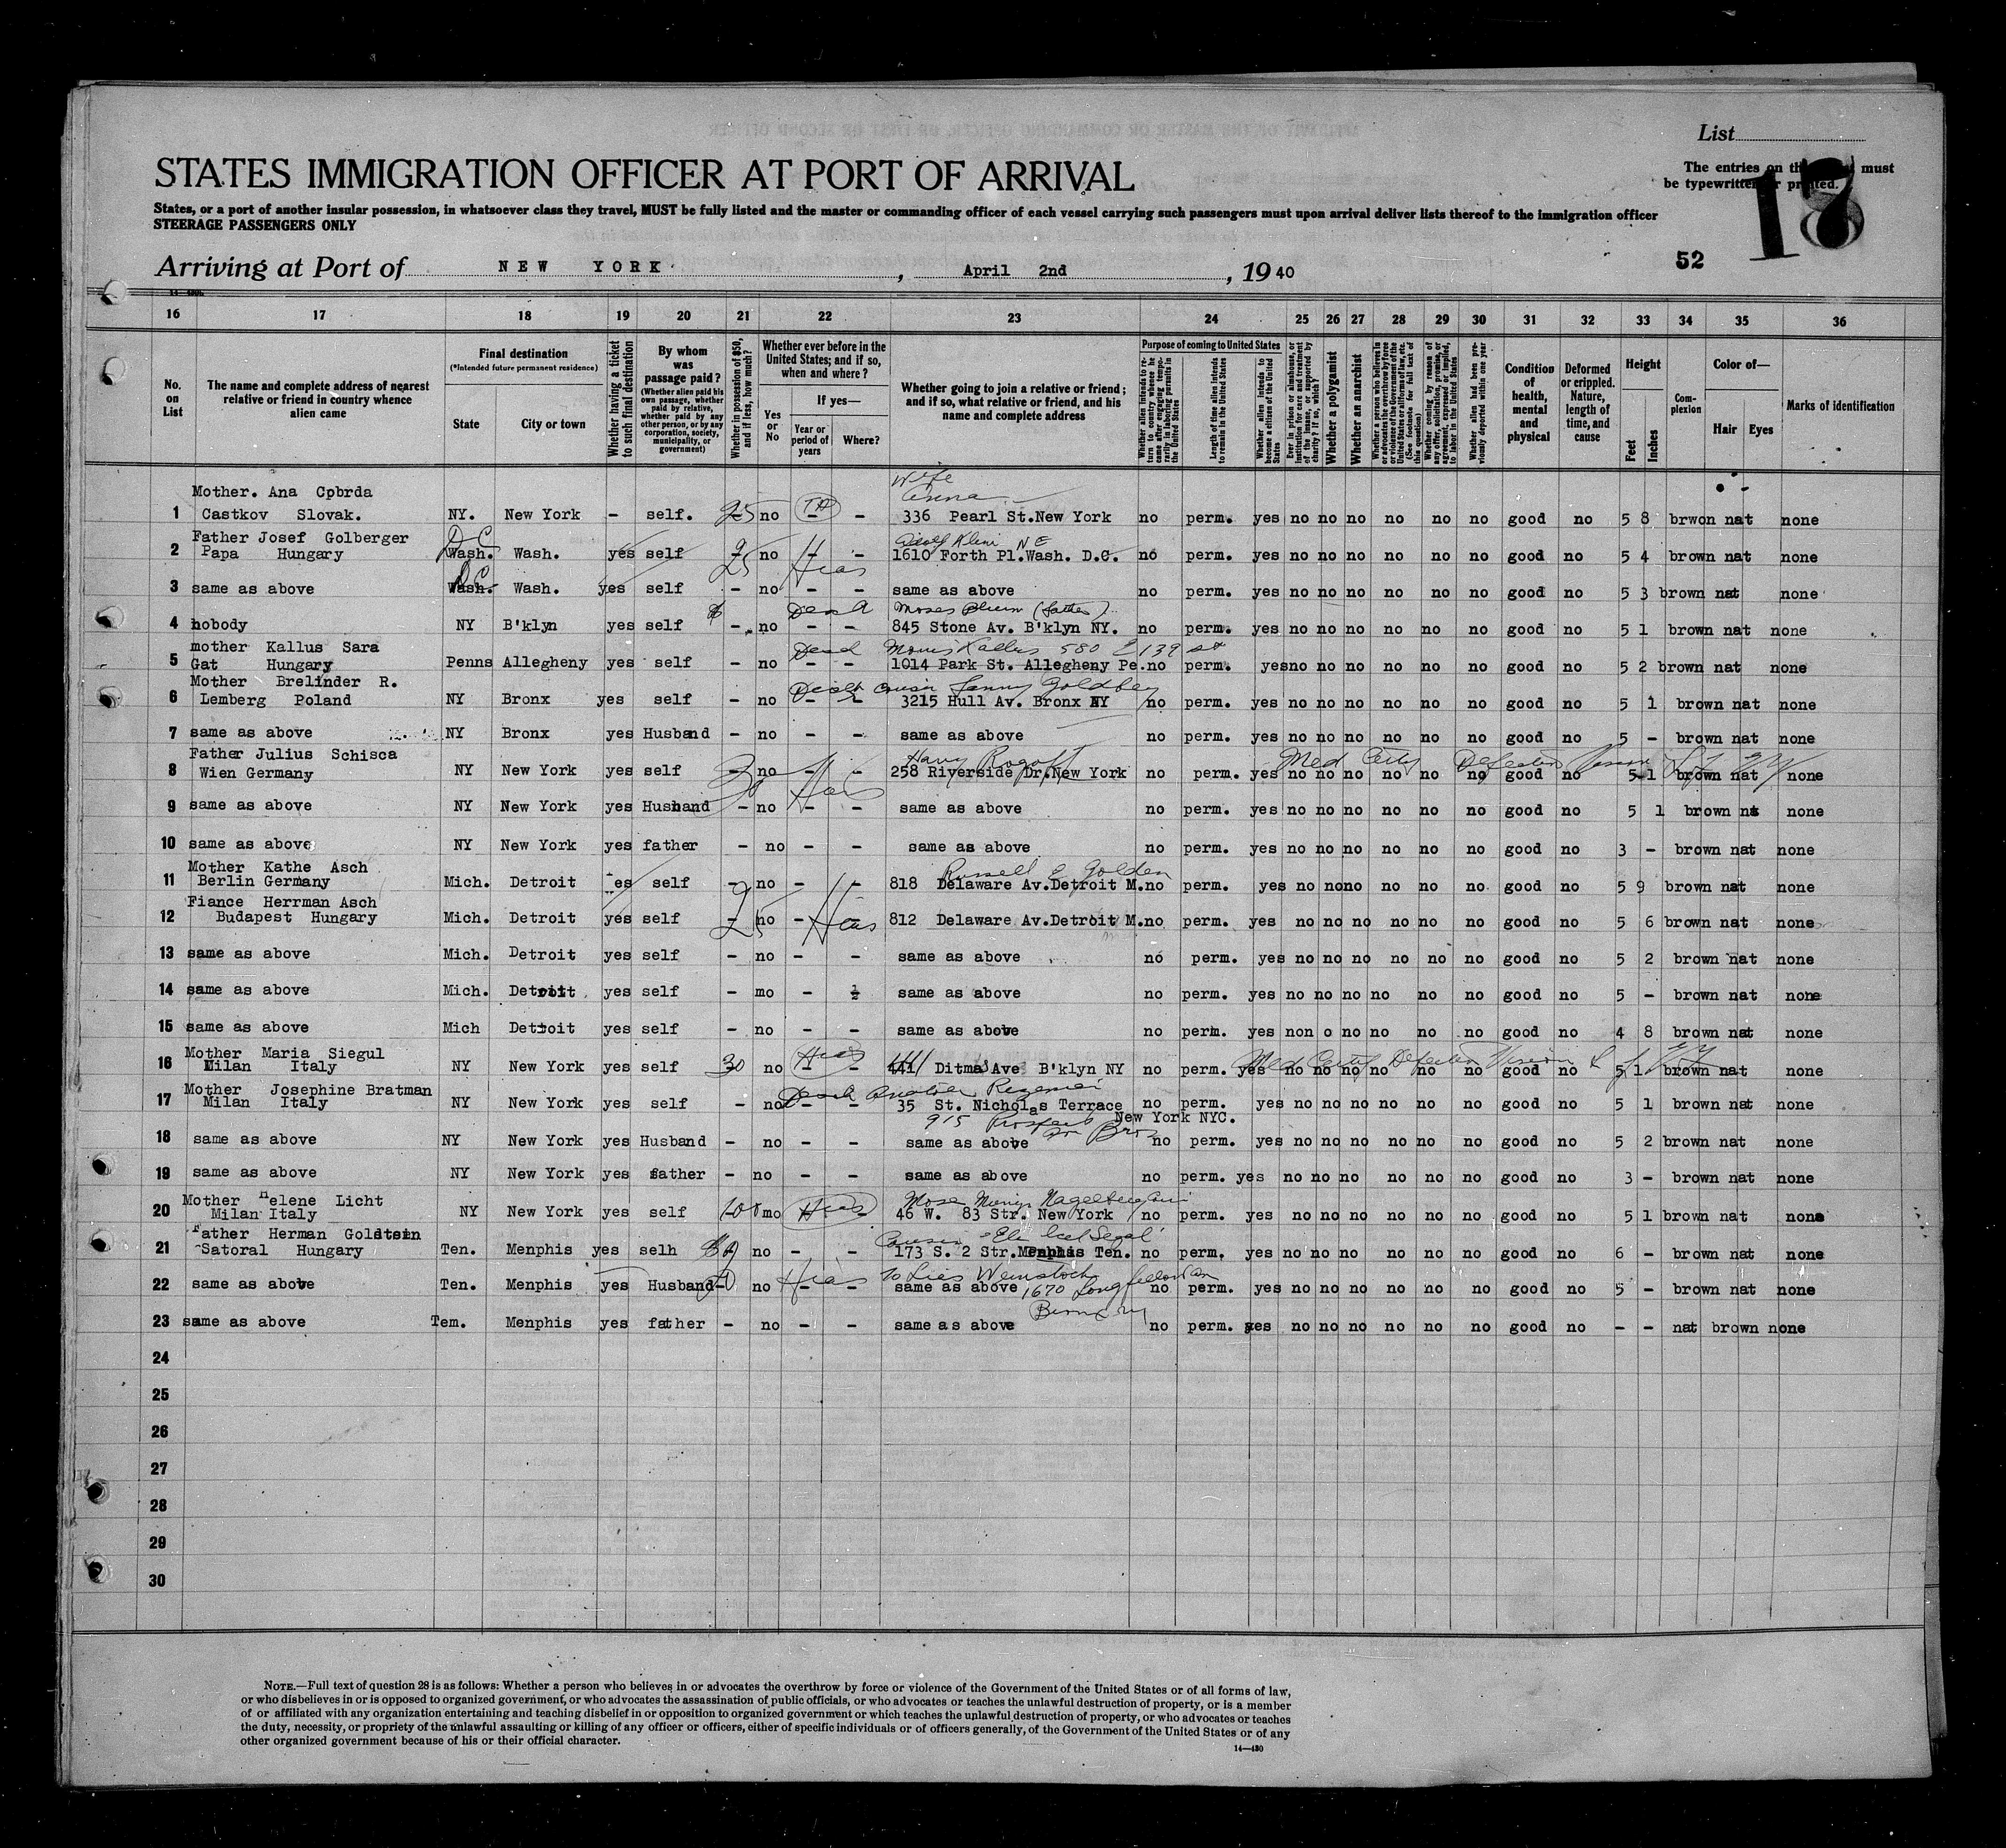 List
STATES IMMIGRATION OFFICER AT PORT OF ARRIVAL
The entries on this must
be typewritten or printed.
18
States, or a port of another insular possession, in whatsoever class they travel, MUST be fully listed and the master or commanding officer of each vessel carrying such passengers must upon arrival deliver lists thereof to the immigration officer
STEERAGE PASSENGERS ONLY
52
Arriving at Port of NEW YORK, April 2nd, 19 40
16 17 18 19 20 21 22 23 24 25 26 27 28 29 30 31 32 33 34 35 36
No. on List
The name and complete address of nearest relative or friend in country whence alien came
Final destination
(*Intended future permanent residence)
State
City or town
Whether having a ticket to such final destination
By whom was passage paid?
(Whether alien paid his own passage, whether paid by relative, whether paid by any other person, or by any corporation, society, municipality, or government)
Whether in possession of $50, and if less, how much?
Whether ever before in the United States; and if so, when and where?
Yes or No
If yes—
Year or period of years
Where?
Whether going to join a relative or friend; and if so, what relative or friend, and his name and complete address
Purpose of coming to United States
Whether alien intends to return to country whence he came after engaging temporarily in laboring pursuits in the United States
Length of time alien intends to remain in the United States
Whether alien intends to become a citizen of the United States
Ever in prison or almshouse, or institution for care and treatment of the insane, or supported by charity? If so, which?
Whether a polygamist
Whether an anarchist
Whether a person who believes in or advocates the overthrow by force or violence of the Government of the United States or all forms of law, etc. (See footnote for full text of this question)
Whether coming by reason of any offer, solicitation, promise, or agreement, expressed or implied, to labor in the United States
Whether alien had been previously deported within one year
Condition of health, mental and physical
Deformed or crippled. Nature, length of time, and cause
Height
Feet
Inches
Complexion
Color of—
Hair Eyes
Marks of identification
Mother. Ana Cobrda wife Anna
1 Castkov Slovak. NY. New York - self. 25 no - - 336 Pearl St.New York no perm. yes no no no no no no good no 5 8 brwon nat none
Father Josef Golberger D C Adolf Klein NE
2 Papa Hungary Wash. Wash. yes self 25 no - - Hias 1610 Forth Pl.Wash. D.C. no perm. yes no no no no no no good no 5 4 brown nat none
D.C.
3 same as above Wash. Wash. yes self - no - - same as above no perm. yes no no no no no no good no 5 3 brown nat none
Moses Blum (father)
4 nobody NY B'klyn yes self - no - - 845 Stone Av. B'klyn NY. no perm. yes no no no no no no good no 5 1 brown nat none
mother Kallus Sara Morris Kallus 580 E 139 St
5 Gat Hungary Penns Allegheny yes self - no - - 1014 Park St. Allegheny Pe. no perm. yes no no no no no no good no 5 2 brown nat none
Mother Brelinder R. cousin Fanny Goldberg
6 Lemberg Poland NY Bronx yes self - no - - 3215 Hull Av. Bronx NY no perm. yes no no no no no no good no 5 1 brown nat none
7 same as above NY Bronx yes Husband - no - - same as above no perm. yes no no no no no no good no 5 - brown nat none
Father Julius Schisca Harry Rogoff Med Certf Defective Vision
8 Wien Germany NY New York yes self 30 no - - Hias 258 Riverside Dr.New York no perm. yes no no no no no no good no 5 1 brown nat none
9 same as above NY New York yes Husband - no - - same as above no perm. yes no no no no no no good no 5 1 brown nat none
10 same as above NY New York yes father - no - - same as above no perm. yes no no no no no no good no 3 - brown nat none
Mother Kathe Asch Russell E Golden
11 Berlin Germany Mich. Detroit es self - no - - 818 Delaware Av.Detroit M. no perm. yes no no no no no no good no 5 9 brown nat none
Fiance Herrman Asch
12 Budapest Hungary Mich. Detroit yes self 25 no - Hias 812 Delaware Av.Detroit M. no perm. yes no no no no no no good no 5 6 brown nat none
13 same as above Mich. Detroit yes self - no - - same as above no perm. yes no no no no no no good no 5 2 brown nat none
14 same as above Mich. Detroit yes self - mo - - same as above no perm. yes no no no no no no good no 5 - brown nat none
15 same as above Mich Detroit yes self - no - - same as above no perm. yes non o no no no no good no 4 8 brown nat none
Mother Maria Siegul Hias Med Certif Defective Vision
16 Milan Italy NY New York yes self 30 no - - Ditmas Ave B'klyn NY no perm. yes no no no no no no good no 5 1 brown nat none
Mother Josephine Bratman
17 Milan Italy NY New York yes self - no - - 35 St. Nicholas Terrace no perm. yes no no no no no no good no 5 1 brown nat none
915 Prospect New York NYC.
18 same as above NY New York yes Husband - no - - same as above no perm. yes no no no no no no good no 5 2 brown nat none
19 same as above NY New York yes father - no - - same as above no perm. yes no no no no no no good no 3 - brown nat none
Mother Helene Licht
20 Milan Italy NY New York yes self 100 mo Hias 46 W. 83 Str. New York no perm. yes no no no no no no good no 5 1 brown nat none
Father Herman Goldstein Cousin
21 Satoral Hungary Ten. Menphis yes selh no - - 173 S. 2 Str.Menphis Ten. no perm. yes no no no no no no good no 6 - brown nat none
22 same as above Ten. Menphis yes Husband- no Hias - - same as above 1670 Longfellow no perm. yes no no no no no no good no 5 - brown nat none
23 same as above Tem. Menphis yes father - no - - same as above no perm. yes no no no no no no good no - - nat brown none
24
25
26
27
28
29
30
NOTE.—Full text of question 28 is as follows: Whether a person who believes in or advocates the overthrow by force or violence of the Government of the United States or of all forms of law,
or who disbelieves in or is opposed to organized government, or who advocates the assassination of public officials, or who advocates or teaches the unlawful destruction of property, or is a member
of or affiliated with any organization entertaining and teaching disbelief in or opposition to organized government or which teaches the unlawful destruction of property, or who advocates or teaches
the duty, necessity, or propriety of the unlawful assaulting or killing of any officer or officers, either of specific individuals or of officers generally, of the Government of the United States or of any
other organized government because of his or their official character.
14—480